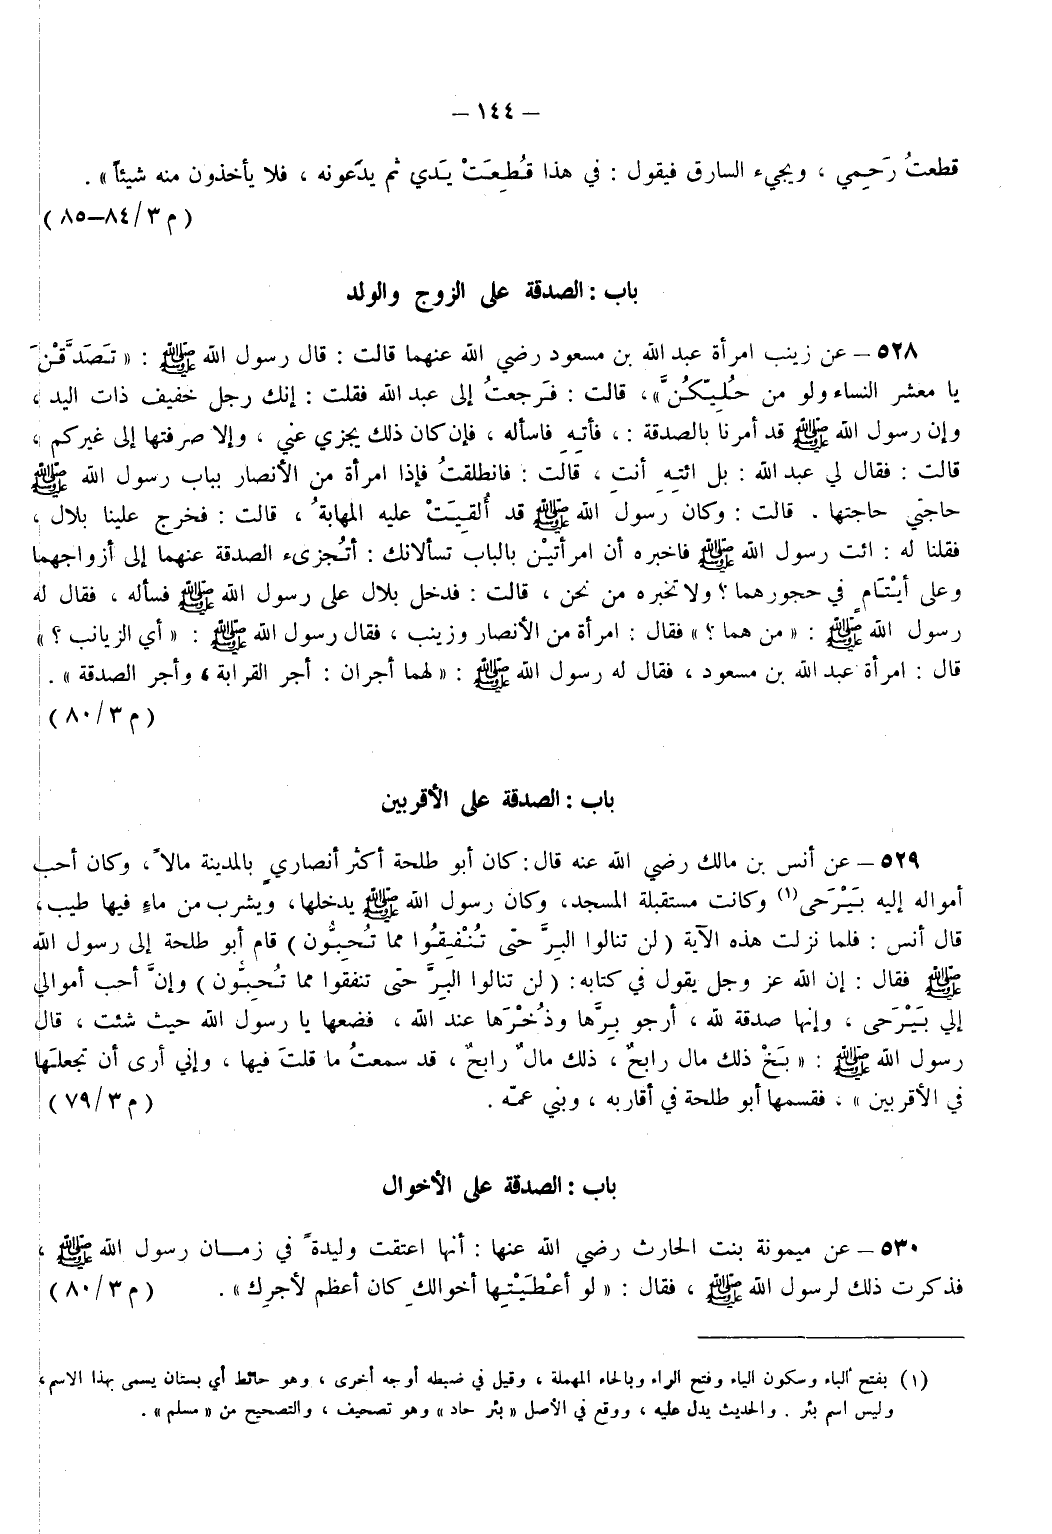 – ١٤٤ –
قطعتُ رَحِمي ، ويجيء السارق فيقول : في هذا قُطِعَتْ يَدي ثم يدَعونه ، فلا يأخذون منه شيئاً » .
( م ٣/٨٤–٨٥ )
باب : الصدقة على الزوج والولد
٥٢٨ – عن زينب امرأة عبد الله بن مسعود رضي الله عنهما قالت : قال رسول الله ﷺ : « تَصَدَّقْنَ
يا معشر النساء ولو من حُلِيّكُنَّ » ، قالت : فَرجعتُ إلى عبد الله فقلت : إنك رجل خفيف ذات اليد ،
وإن رسول الله ﷺ قد أمرنا بالصدقة : ، فأتِهِ فاسأله ، فإن كان ذلك يجزي عني ، وإلا صرفتها إلى غيركم ،
قالت : فقال لي عبد الله : بل ائتِهِ أنتِ ، قالت : فانطلقتُ فإذا امرأة من الأنصار بباب رسول الله ﷺ
حاجتي حاجتها . قالت : وكان رسول الله ﷺ قد أُلقِيَتْ عليه المهابةُ ، قالت : فخرج علينا بلال ،
فقلنا له : ائت رسول الله ﷺ فاخبره أن امرأتيْن بالباب تسألانك : أتُجزىء الصدقة عنهما إلى أزواجهما
وعلى أيْتَامٍ في حجورهما ؟ ولا تخبره من نحن ، قالت : فدخل بلال على رسول الله ﷺ فسأله ، فقال له
رسول الله ﷺ : « من هما ؟ » فقال : امرأة من الأنصار وزينب ، فقال رسول الله ﷺ : « أي الزيانب ؟ »
قال : امرأة عبد الله بن مسعود ، فقال له رسول الله ﷺ : « لهما أجران : أجر القرابة ، وأجر الصدقة » .
( م ٣/٨٠ )
باب : الصدقة على الأقربين
٥٢٩ – عن أنس بن مالك رضي الله عنه قال : كان أبو طلحة أكثر أنصاريٍ بالمدينة مالاً ، وكان أحب
أمواله إليه بَيْرَحى (١) وكانت مستقبلة المسجد، وكان رسول الله ﷺ يدخلها، ويشرب من ماءٍ فيها طيب،
قال أنس : فلما نزلت هذه الآية ( لن تنالوا البِرَّ حتى تُنْفِقُوا مما تُحِبُّون ) قام أبو طلحة إلى رسول الله
ﷺ فقال : إن الله عز وجل يقول في كتابه : ( لن تنالوا البِرَّ حتى تنفقوا مما تُحِبُّون ) وإنَّ أحب أموالي
إلي بَيْرَحى ، وإنها صدقة لله ، أرجو بِرَّها وذُخْرَها عند الله ، فضعها يا رسول الله حيث شئت ، قال
رسول الله ﷺ : « بَخْ ذلك مال رابحٌ ، ذلك مالٌ رابحٌ ، قد سمعتُ ما قلتَ فيها ، وإني أرى أن تجعلَها
في الأقربين » ، فقسمها أبو طلحة في أقاربه ، وبني عمّه . ( م ٣/٧٩ )
باب : الصدقة على الأخوال
٥٣٠ – عن ميمونة بنت الحارث رضي الله عنها : أنها اعتقت وليدةً في زمـــان رسول الله ﷺ ،
فذكرت ذلك لرسول الله ﷺ ، فقال : « لو أعْطَيْتِها أخوالكِ كان أعظم لأجرِك » . ( م ٣/٨٠ )
(١) بفتح الباء وسكون الياء وفتح الراء وبالحاء المهملة ، وقيل في ضبطه أوجه أخرى ، وهو حائط أي بستان يسمى بهذا الاسم،
وليس اسم بئر . والحديث يدل عليه ، ووقع في الأصل « بئر حاد » وهو تصحيف ، والتصحيح من « مسلم » .